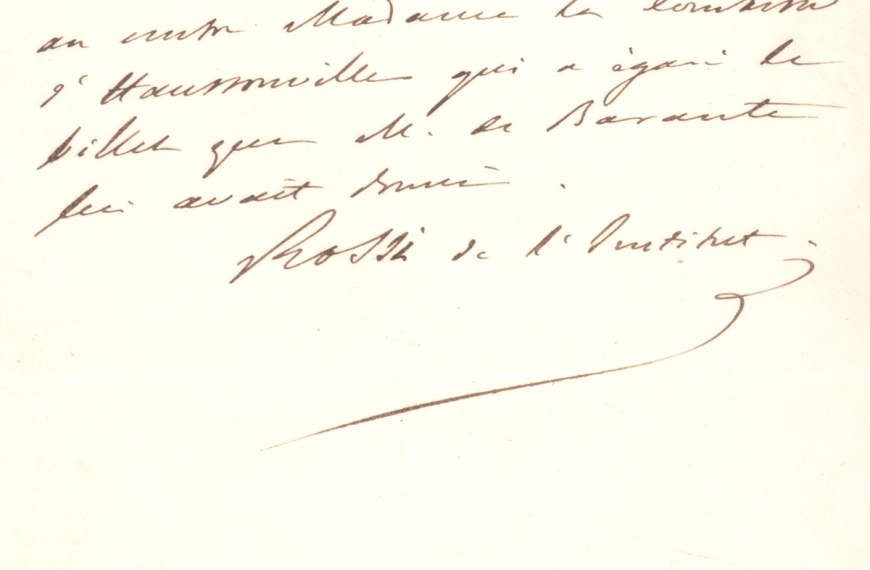 au centre Madame la Comtesse
d'Haussonville qui a égaré le
billet que M. de Barante
lui avait donné.
Rossi de l'Institut.